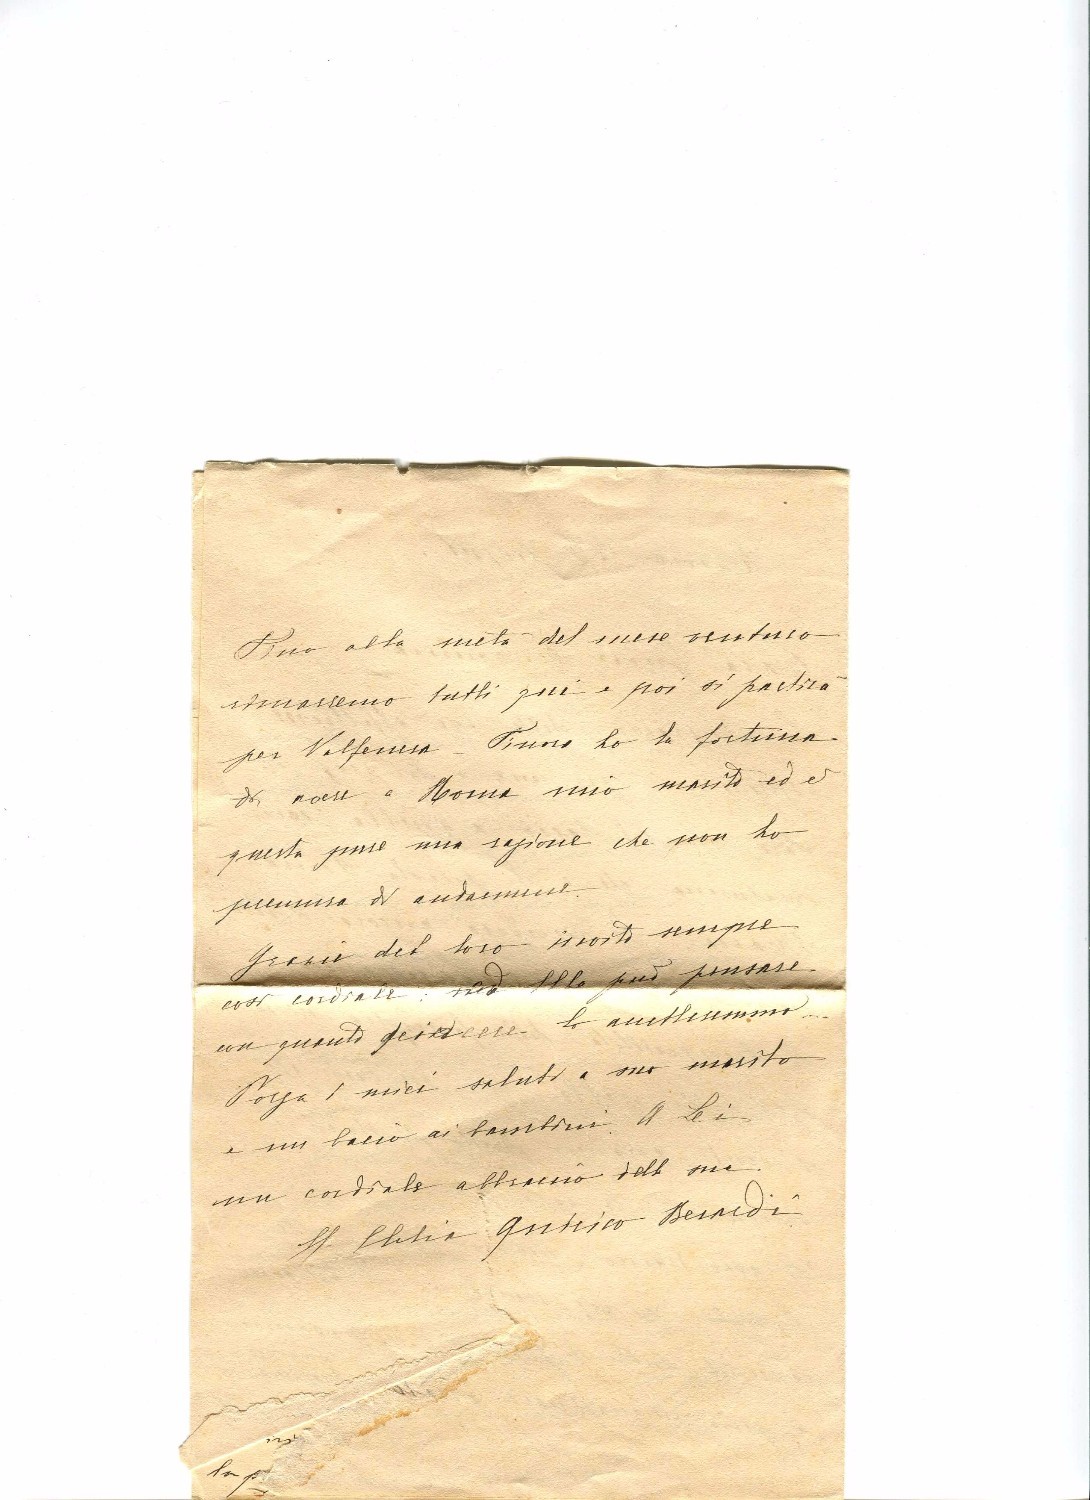 Fino alla metà del mese venturo
rimarremo tutti qui e poi si partirà
per Valfenera – Finora ho la fortuna
di avere a Roma mio marito ed è
questa pure una ragione che non ho
premura di andarmene.
Grazie del loro invito sempre
così cordiale; Ella può pensare
con quanto piacere lo accetteremmo...
Porga i miei saluti a suo marito
e un bacio ai bambini. A Lei
un cordiale abbraccio della sua
Clelia Berardi
la p